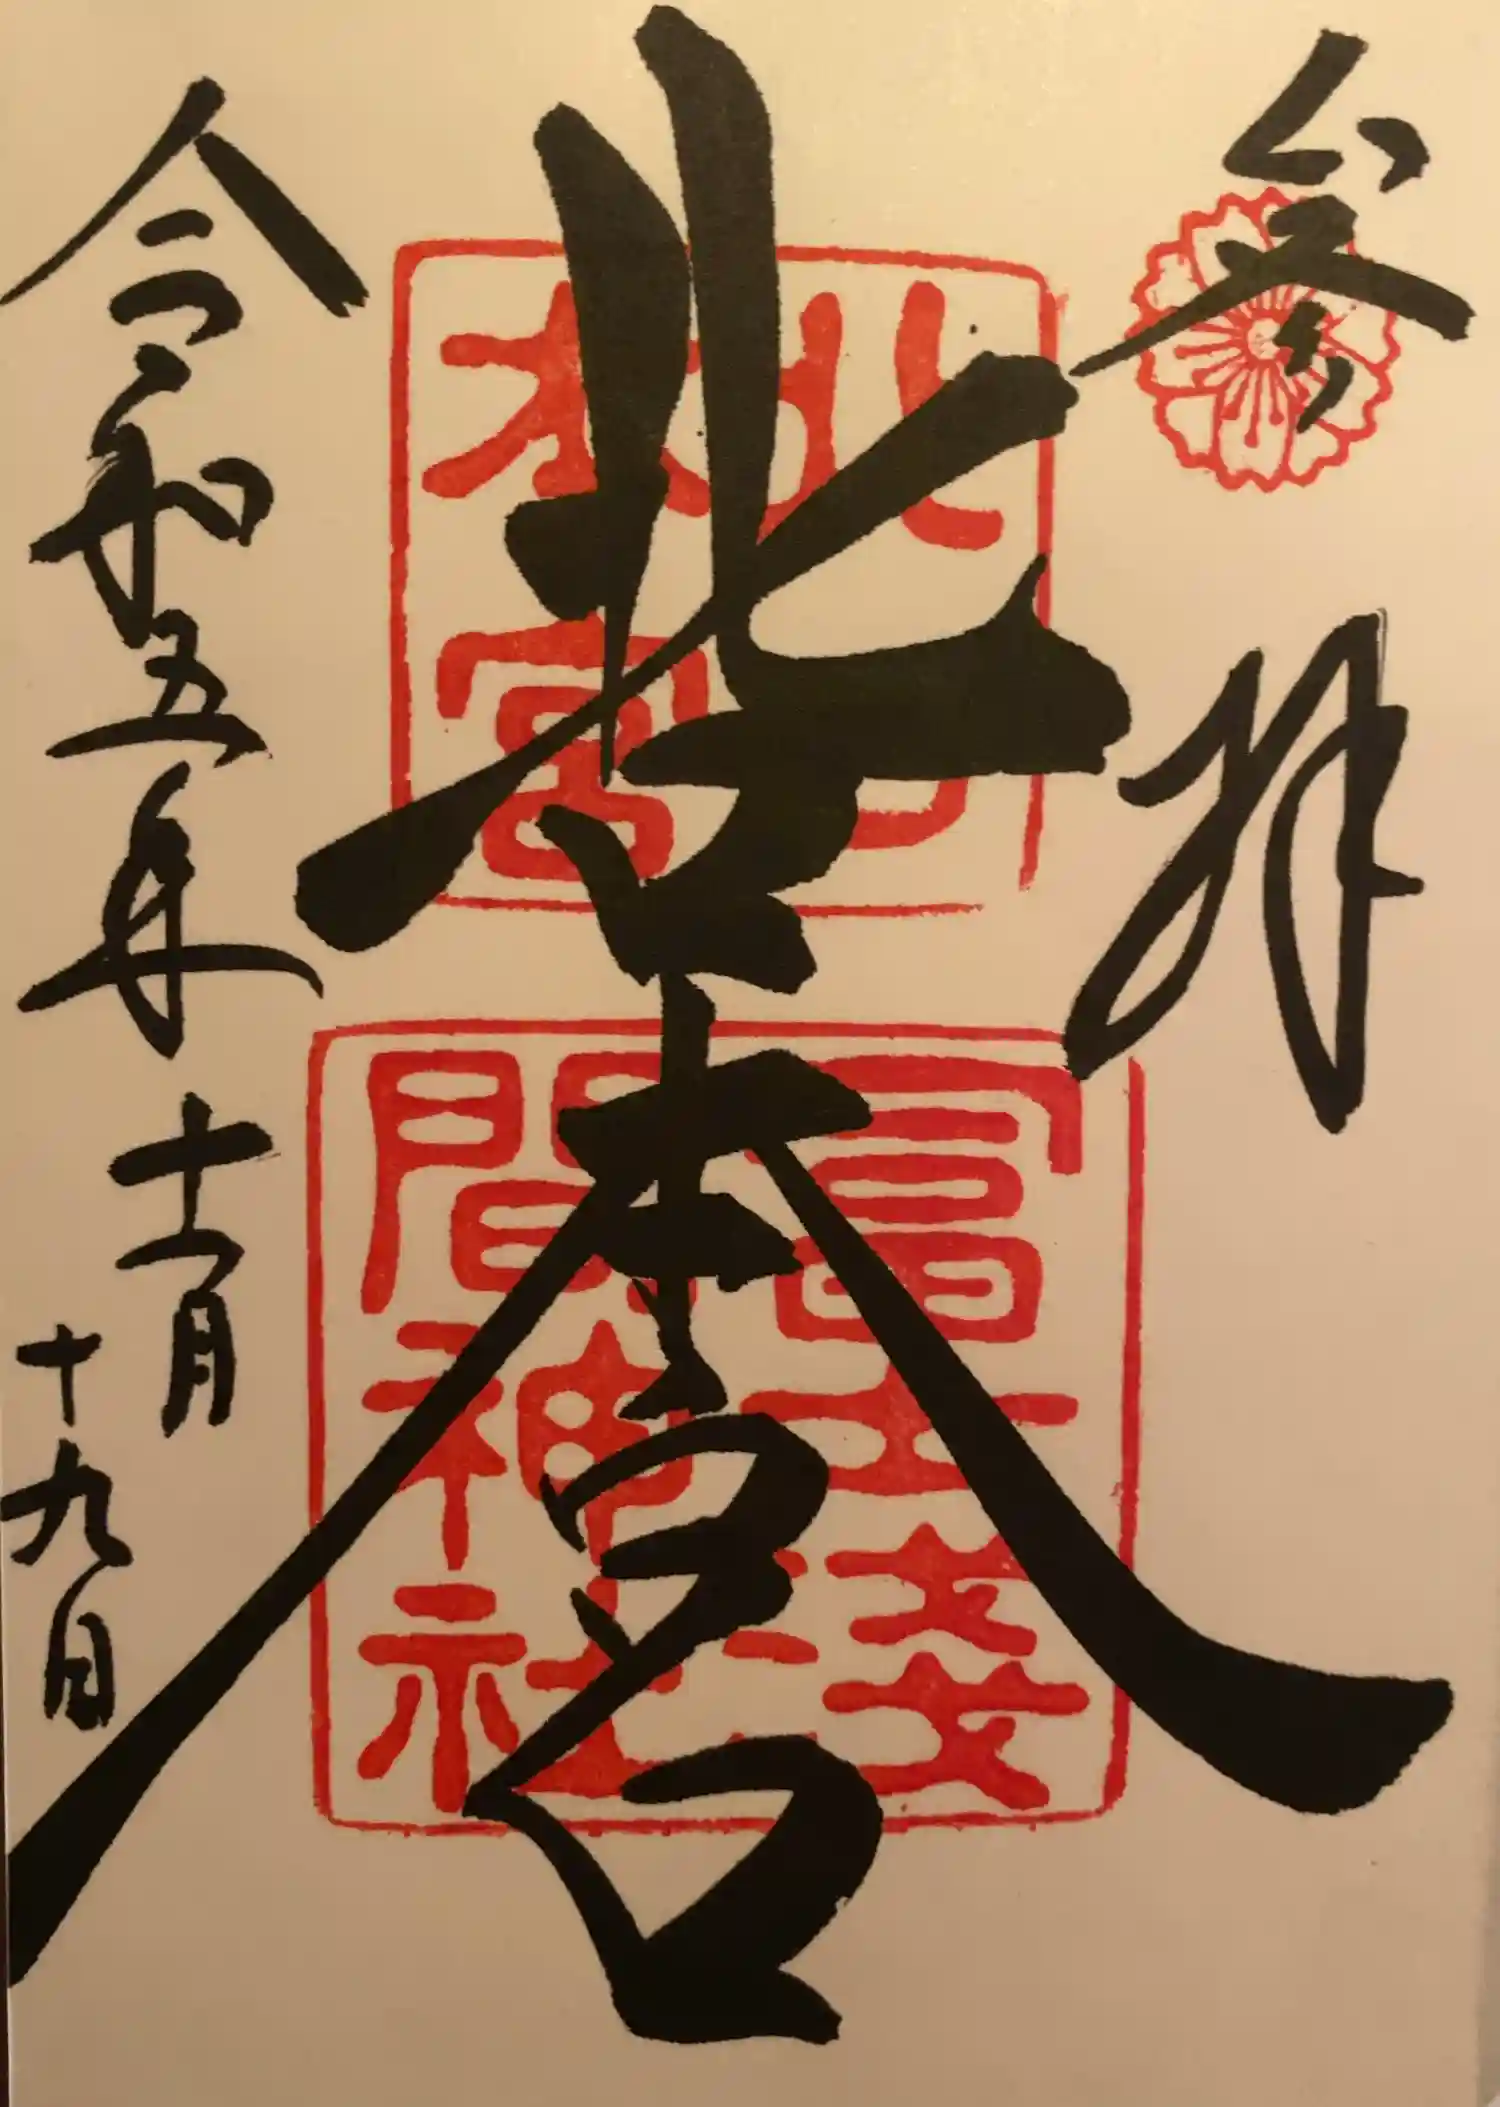 参拝
北口本宮
北口
本宮
冨士淺
間神社
令和五年十一月
十九日